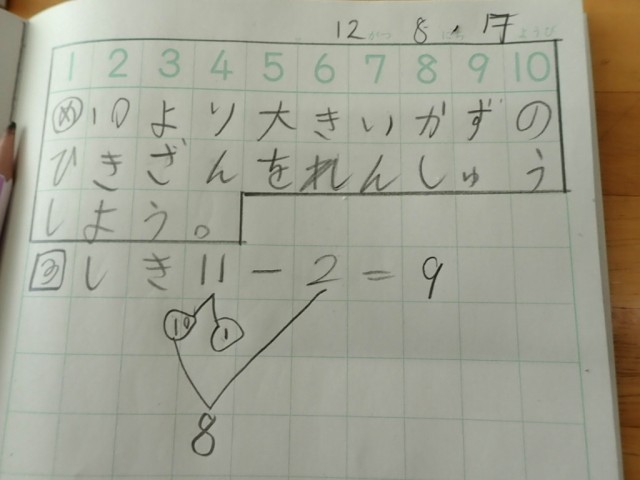 12 がつ 8 にち ようび
1 2 3 4 5 6 7 8 9 10
め 10より大きいかずの
ひきざんをれんしゅう
しよう。
しき 11 - 2 = 9
10 1
8